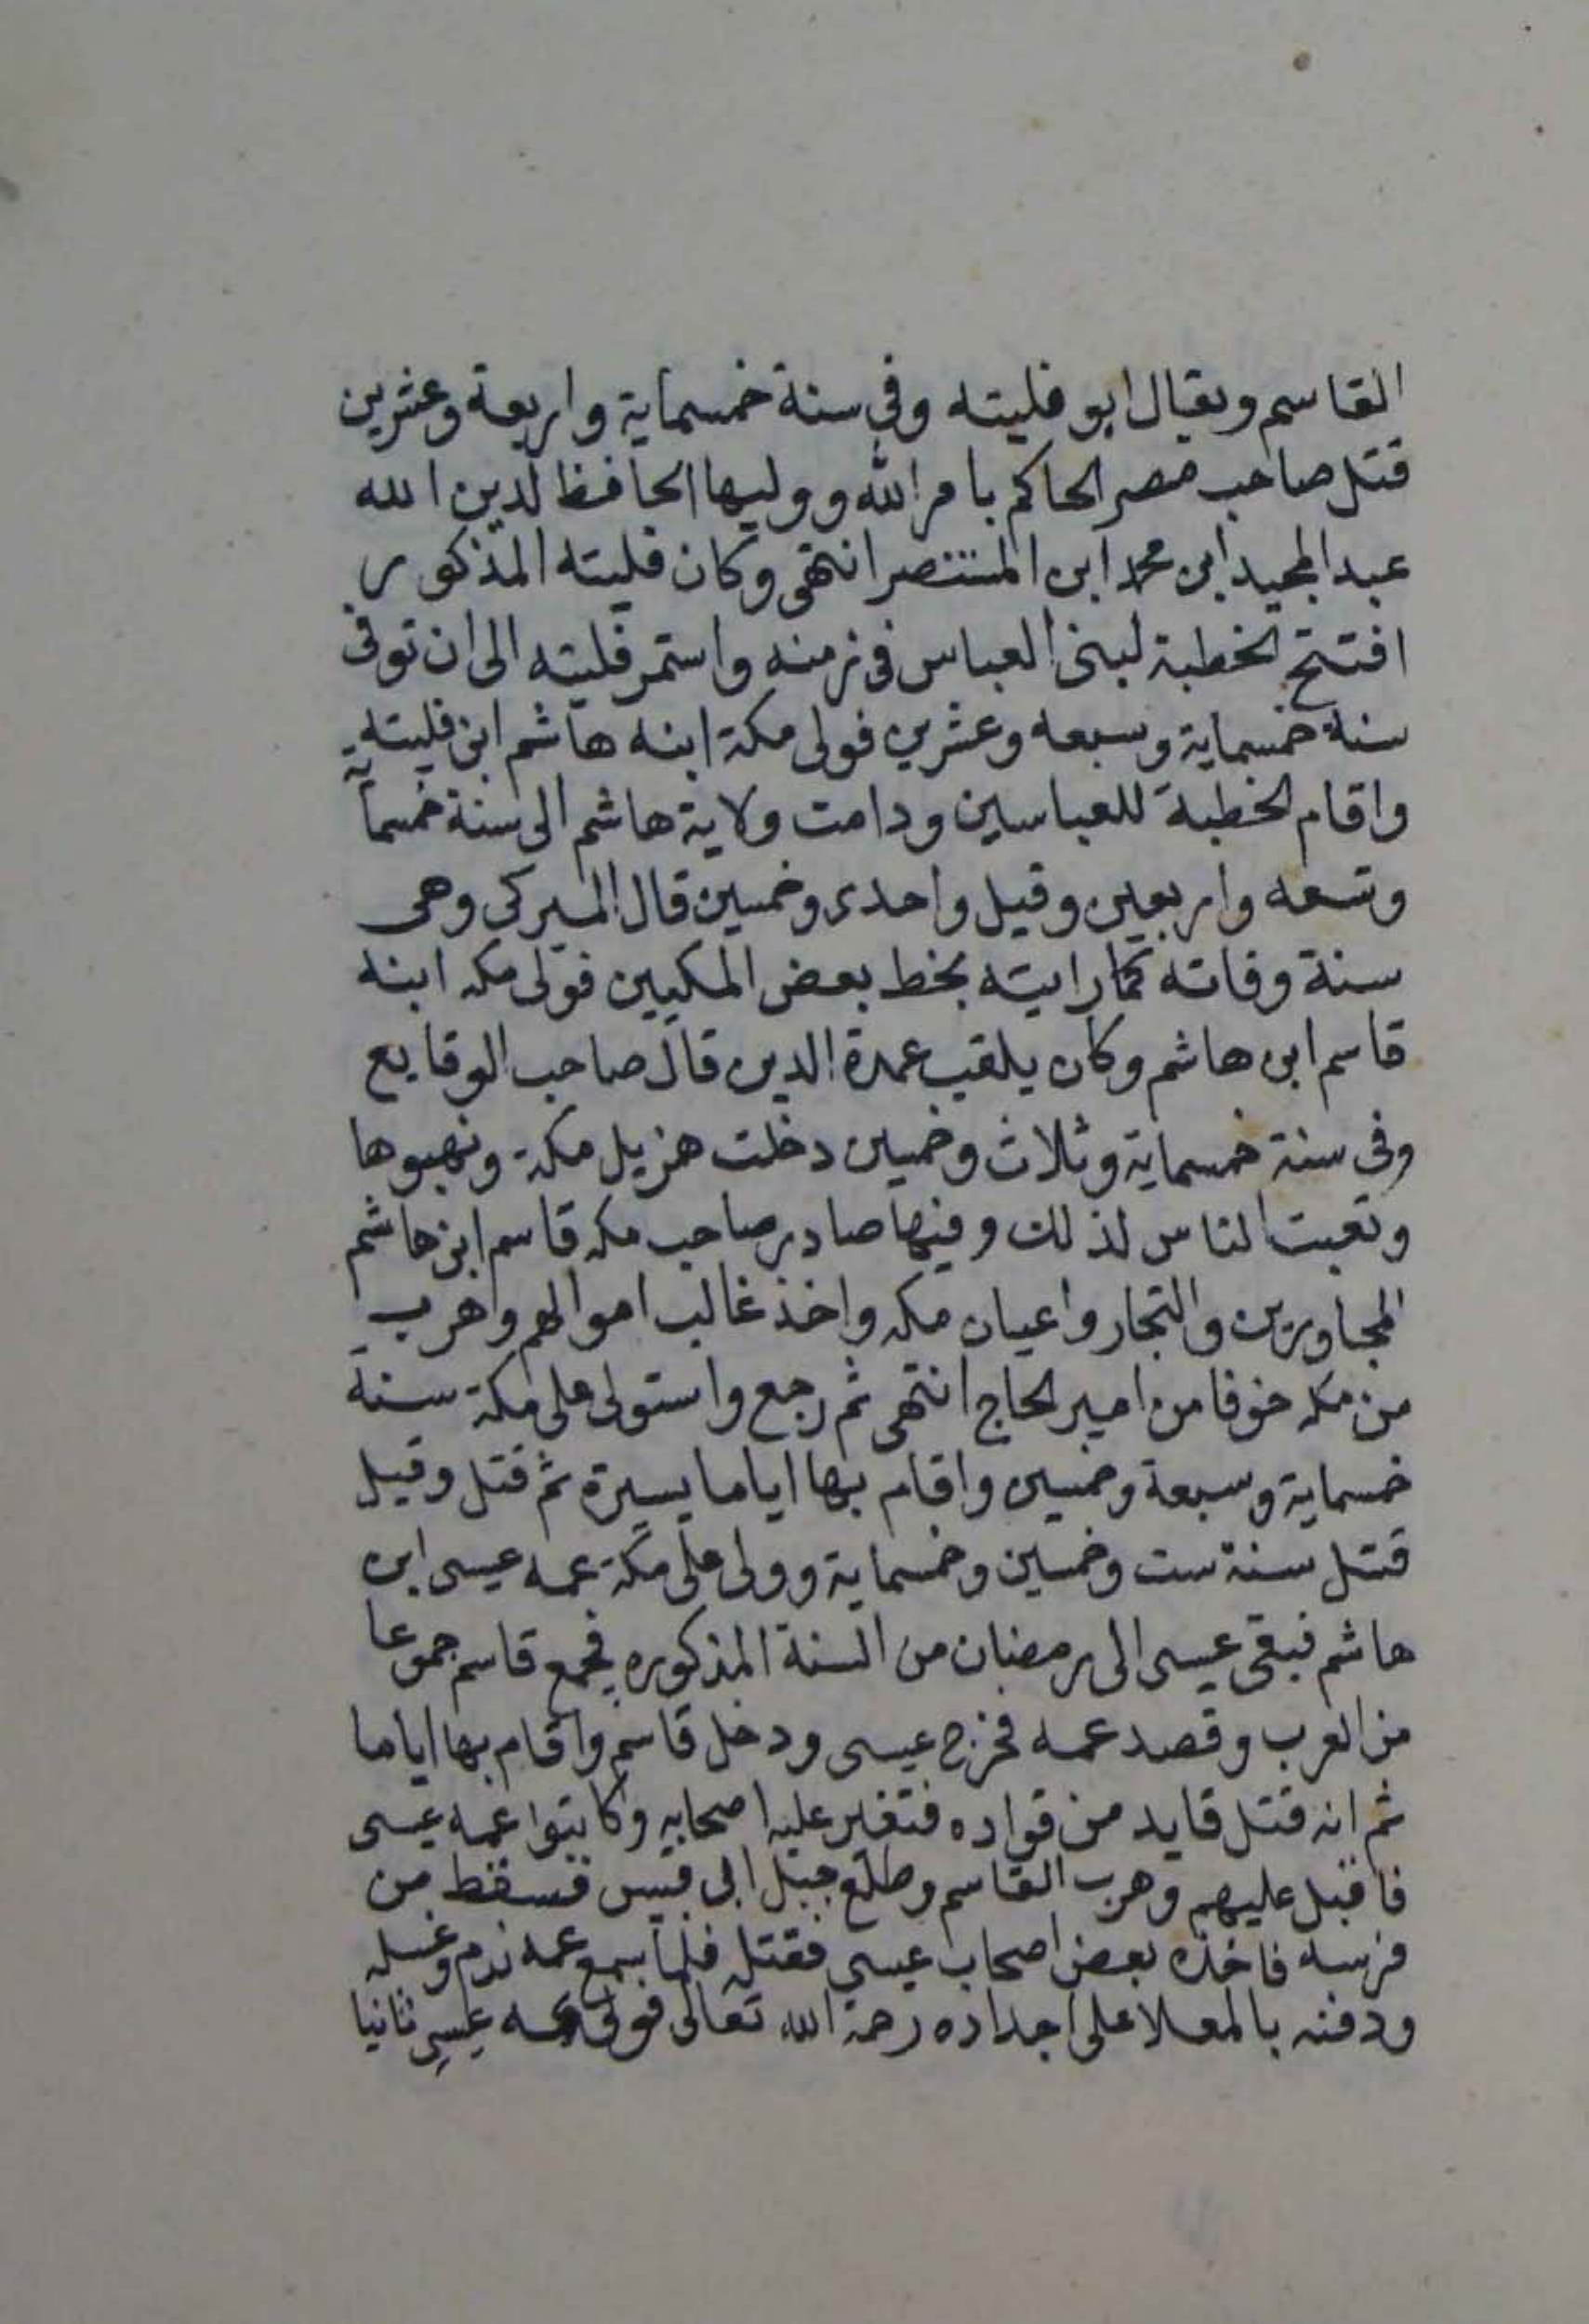 القاسم ويقال ابو فليته وفي سنة خمسماية واربعة وعشرين
قتل صاحب مصر الحاكم بامر الله ووليها الحافظ لدين الله
عبد المجيد ابن محمد ابن المستنصر انتهى وكان فليته المذكور
افتتح الخطبة لبنى العباس فى زمنه واستمر فليته الى ان توفى
سنة خمسماية وسبعه وعشرين فولى مكة ابنه هاشم ابن فليته
واقام الخطبة للعباسين ودامت ولاية هاشم الى سنة خمسماية
وتسعه واربعين وقيل واحدى وخمسين قال الميركى وهى
سنة وفاته كما رايته بخط بعض المكيين فولى مكه ابنه
قاسم ابن هاشم وكان يلقب عمدة الدين قال صاحب الوقايع
وفى سنة خمسماية وثلاث وخمسين دخلت هزيل مكة ونهبوها
وتعبت الناس لذلك وفيها صادر صاحب مكه قاسم ابن هاشم
المجاورين والتجار واعيان مكه واخذ غالب اموالهم وهرب
من مكه خوفا من امير الحاج انتهى ثم رجع واستولى على مكة سنة
خمسماية وسبعة وخمسين واقام بها اياما يسيرة ثم قتل وقيل
قتل سنة ست وخمسين وخمسماية وولى على مكة عمه عيسى ابن
هاشم فبقى عيسى الى رمضان من السنة المذكوره فجمع قاسم جموعا
من العرب وقصد عمه فخرج عيسى ودخل قاسم واقام بها اياما
ثم انه قتل قايد من قواده فتغير عليه اصحابه وكاتبوا عمه عيسى
فاقبل عليهم وهرب القاسم وطلع جبل ابى قبيس فسقط من
فرسه فاخذه بعض اصحاب عيسى فقتله فلما سمع عمه ندم وغسله
ودفنه بالمعلا على اجداده رحمة الله تعالى فولى عمه عيسى ثانيا